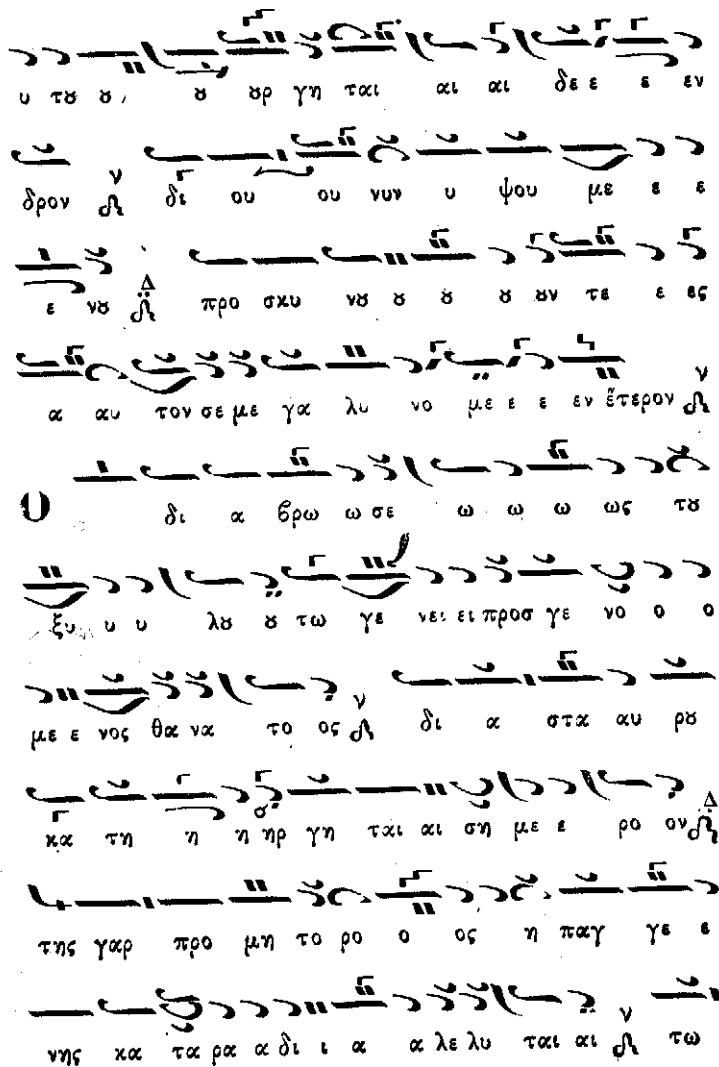 υ τȣ ȣ, ȣ ȣρ γη ται αι αι δε ε ε εν
δρον ν δι ου ου νυν υ ψου με ε ε
ε νȣ Δ προ σκυ νȣ ȣ ȣ ȣ ȣν τε ε ες
α αυ τον σε με γα λυ νο με ε ε εν ἕτερον ν
Ο δι α βρω ω σε ω ω ω ως τȣ
ξυ υ υ λȣ ȣ τω γε νει ει προσ γε νο ο ο
με ε νος θα να το ος ν δι α στα αυ ρȣ
κα τη η η ηρ γη ται αι ση με ε ρο ον Δ
της γαρ προ μη το ρο ο ος η παγ γε ε
νης κα τα ρα α δι ι α α λε λυ ται αι ν τω